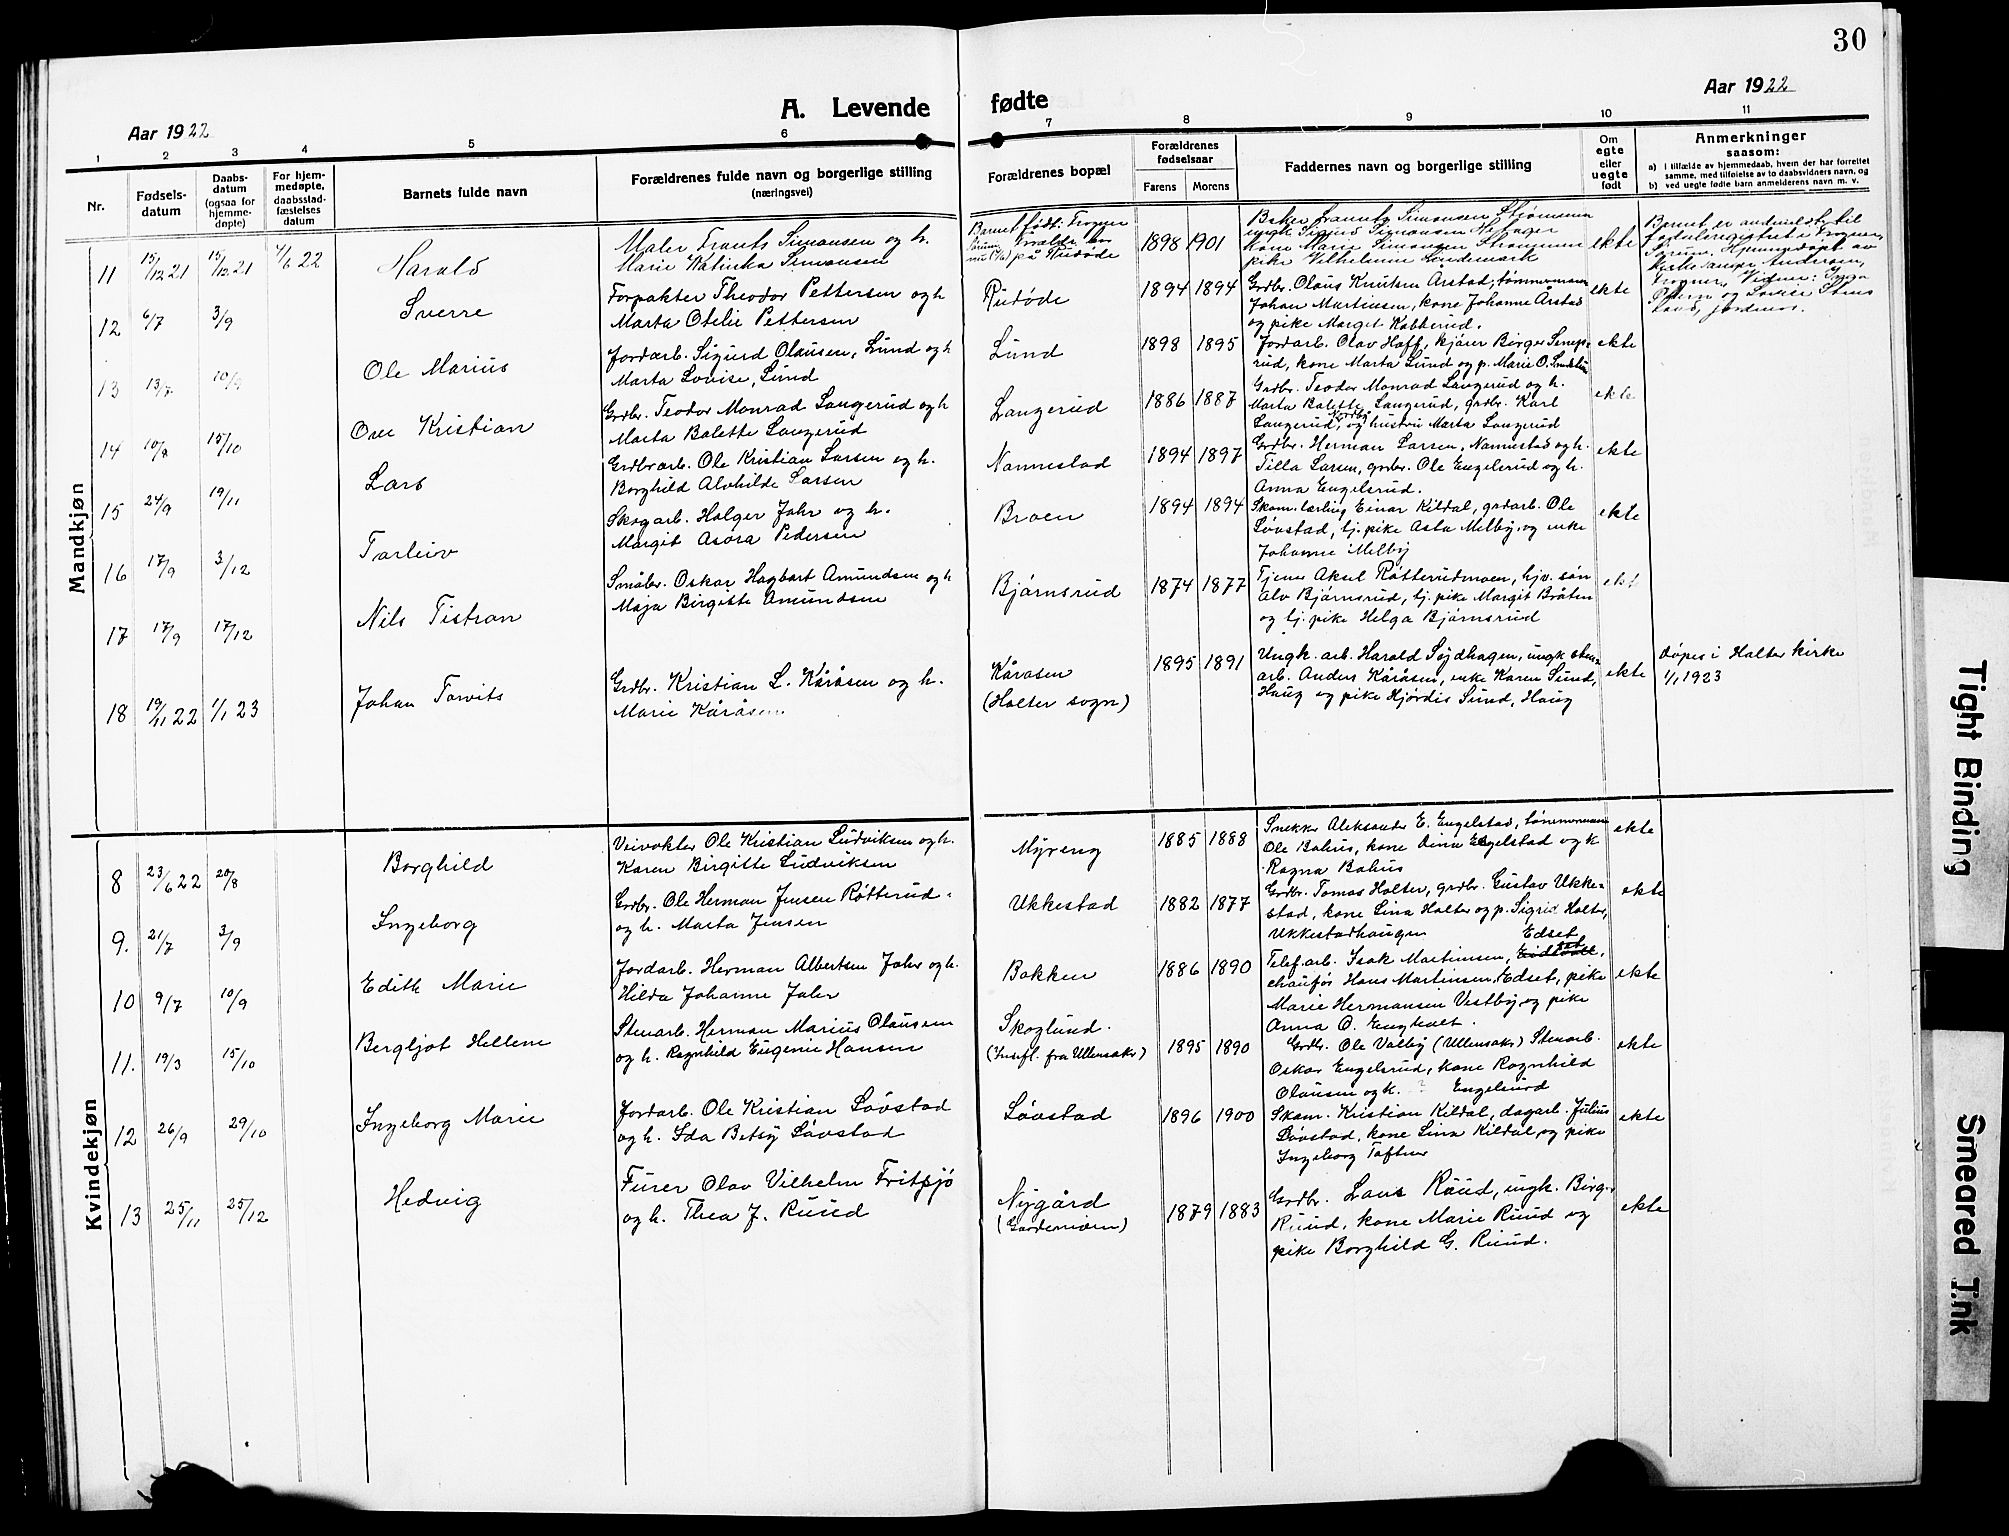 30
Aar 1922
A. Levende fødte
Aar 1922
1 2 3 4 5 6 7 8 9 10 11
Nr.
Fødsels-
datum
Daabs-
datum
(ogsaa for
hjemme-
døpte)
For hjem-
medøpte,
daabsstad-
fæstelses
datum
Barnets fulde navn
Forældrenes fulde navn og borgerlige stilling
(næringsvei)
Forældrenes bopæl
Forældrenes
fødselsaar
Farens Morens
Faddernes navn og borgerlige stilling
Om
egte
eller
uegte
født
Anmerkninger
saasom:
a) i tilfælde av hjemmedaab, hvem der har forrettet
samme, med tilføielse av to daabsvidners navn, og
b) ved uegte fødte barn anmelderens navn m. v.
Mandkjøn
11 15/12 21 15/12 21 4/6 22 Harald
Maler Frants Simonsen og h.
Marie Katinka Simonsen
Barnet født: Frogner
på Risbøde
1898 1901
Simonsen Strømmen
ungk. Sigurd Simonsen
kone Marie Simonsen Strømmen
pike Vilhelmine Sandemark
ekte
Barnet er anmeldt til
fødselsregistret i Frogner,
Sørum. Hjemmedøpt av
Andersen,
Frogner, Vidner: Inga
og Lovise
jordmor.
12 6/7 3/9 Sverre
Forpakter Theodor Pettersen og h
Marta Otelie Pettersen
1894 1894
Grdbr. Olaus Knutsen Årstad, tømmermann
Johan Martinsen, kone Johanne Årstad
og pike Marget Kabberud.
ekte
13 13/7 10/9 Ole Marius
Jordarb. Sigurd Olausen, Lund og h
Marta Lovise, Lund
Lund
1898 1895
Jordarb. Olav Hoff, kjører Birger
rud, kone Marta Lund og p. Marie O.
ekte
14 10/8 15/10 Ove Kristian
Grdbr. Teodor Monrad Langerud og h
Marta Balette Langerud
Langerud
1886 1887
Grdbr. Teodor Monrad Langerud og h.
Marta Balette Langerud, grdbr. Karl
Langerud, Nordby og hustru Marta Langerud
ekte
15 24/9 19/11 Lars
Grdbrarb. Ole Kristian Larsen og h.
Borghild Alvhilde Larsen
Nannestad
1894 1897
Grdbr. Herman Larsen, Nannestad og h.
Tilla Larsen, grdbr. Ole Engelsrud og h.
Anna Engelsrud.
ekte
16 17/9 3/12 Tarleiv
Skogarb. Holger Jahr og h.
Margit Asora Pedersen
Braen
1894 1894
Skom. lærling Einar Kildal, grdarb. Ole
Løvstad, tj. pike Asta Melby, og enke
Johanne Melby
ekte
17 17/9 17/12 Nils Tistran
Småbr. Oskar Hagbart Amundsen og h
Maja Birgitte Amundsen
Bjørnsrud
1874 1877
Tjener Aksel Røtterudmoen, hjv. søn
Alv Bjørnsrud, tj. pike Margit Bråten
og tj. pike Helga Bjørnsrud
18 19/11 22 1/1 23 Johan Tarvits
Grdbr. Kristian L. Kåråsen og h.
Marie Kåråsen
Kåråsen
(Holter sogn)
1895 1891
Ungk. arb. Harald Sydhagen, ungk sten-
arb. Anders Kåråsen, enke Karen Lund,
Haug og pike Hjørdis Lund, Haug
ekte
døpes i Holter kirke
1/1 1923
Kvindekjøn
8 23/6 22 20/8 Borghild
Veivokter Ole Kristian Ludviksen og h.
Karen Birgitte Ludviksen
Myreng
1885 1888
Snekker Aleksander E. Engelstad, tømmermann
Ole Bahus, kone Dina Engelstad og k
Ragna Bahus
ekte
9. 21/7 3/9 Ingeborg
Grdbr. Ole Herman Jensen Røtterud
og h. Marta Jensen
Ukkestad
1882 1877
Grdbr. Tomas Holter, grdbr. Gustav Ukke-
stad, kone Lina Holter og p. Sigrid Holter,
Ukkestadhaugen
ekte
10 9/7 10/9 Edith Marie
Jordarb. Herman Albertsen Jahr og h.
Hilda Johanne Jahr
Bakken
1886 1890
Edset
Telef. arb. Isak Martinsen,
chauför Hans Martinsen, Edset, pike
Marie Hermansen Vestby, og pike
Anna O.
ekte
11. 19/3 15/10 Bergljot Hellene
Stenarb. Herman Marius Olausen
og h. Ragnhild Eugenie Hansen
Skoglund.
(Innfl. fra Ullensaker)
1895 1890
Grdbr. Ole Valby (Ullensaker) Stenarb.
Oskar Engelsrud, kone Ragnhild
Olausen og k. ? Engelsrud
ekte
12 26/9 29/10 Ingeborg Marie
Jordarb. Ole Kristian Løvstad
og h. Ida Betsy Løvstad
Løvstad
1896 1900
Skom. Kristian Kildal, dagarb. Julius
Løvstad, kone Lina Kildal, og pike
Ingeborg Toftner
ekte
13 25/11 25/12 Hedvig
Furer Olav Vilhelm Fritsjö
og h. Thea J. Ruud
Nygård
(Gardermoen)
1879 1883
Grdbr. Lars Ruud, ungk. Birger
Ruud, kone Marie Ruud og
pike Borghild G. Ruud.
ekte
Tight Binding
Smeared Ink